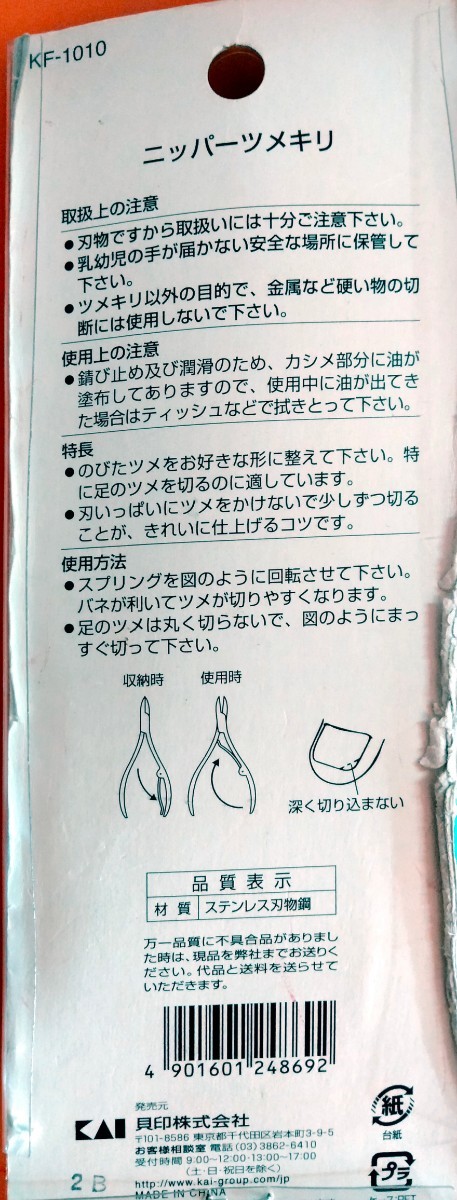 KF-1010
ニッパーツメキリ
取扱上の注意
●刃物ですから取扱いには十分ご注意下さい。
●乳幼児の手が届かない安全な場所に保管して
下さい。
●ツメキリ以外の目的で、金属など硬い物の切
断には使用しないで下さい。
使用上の注意
●錆び止め及び潤滑のため、カシメ部分に油が
塗布してありますので、使用中に油が出てき
た場合はティッシュなどで拭きとって下さい。
特長
●のびたツメをお好きな形に整えて下さい。特
に足のツメを切るのに適しています。
●刃いっぱいにツメをかけないで少しずつ切る
ことが、きれいに仕上げるコツです。
使用方法
●スプリングを図のように回転させて下さい。
バネが利いてツメが切りやすくなります。
●足のツメは丸く切らないで、図のようにまっ
すぐ切って下さい。
収納時 使用時
深く切り込まない
品質表示
材質 ステンレス刃物鋼
万一品質に不具合品がありまし
た時は、現品を弊社までお送りく
ださい。代品と送料を送らせて
いただきます。
4 901601 248692
発売元
KAI 貝印株式会社
〒101-8586 東京都千代田区岩本町3-9-5
お客様相談室 電話(03)3862-6410
受付時間 9:00-12:00・13:00-17:00
(土・日・祝日を除く)
http://www.kai-group.com/jp
MADE IN CHINA
2B
紙
台紙
プラ